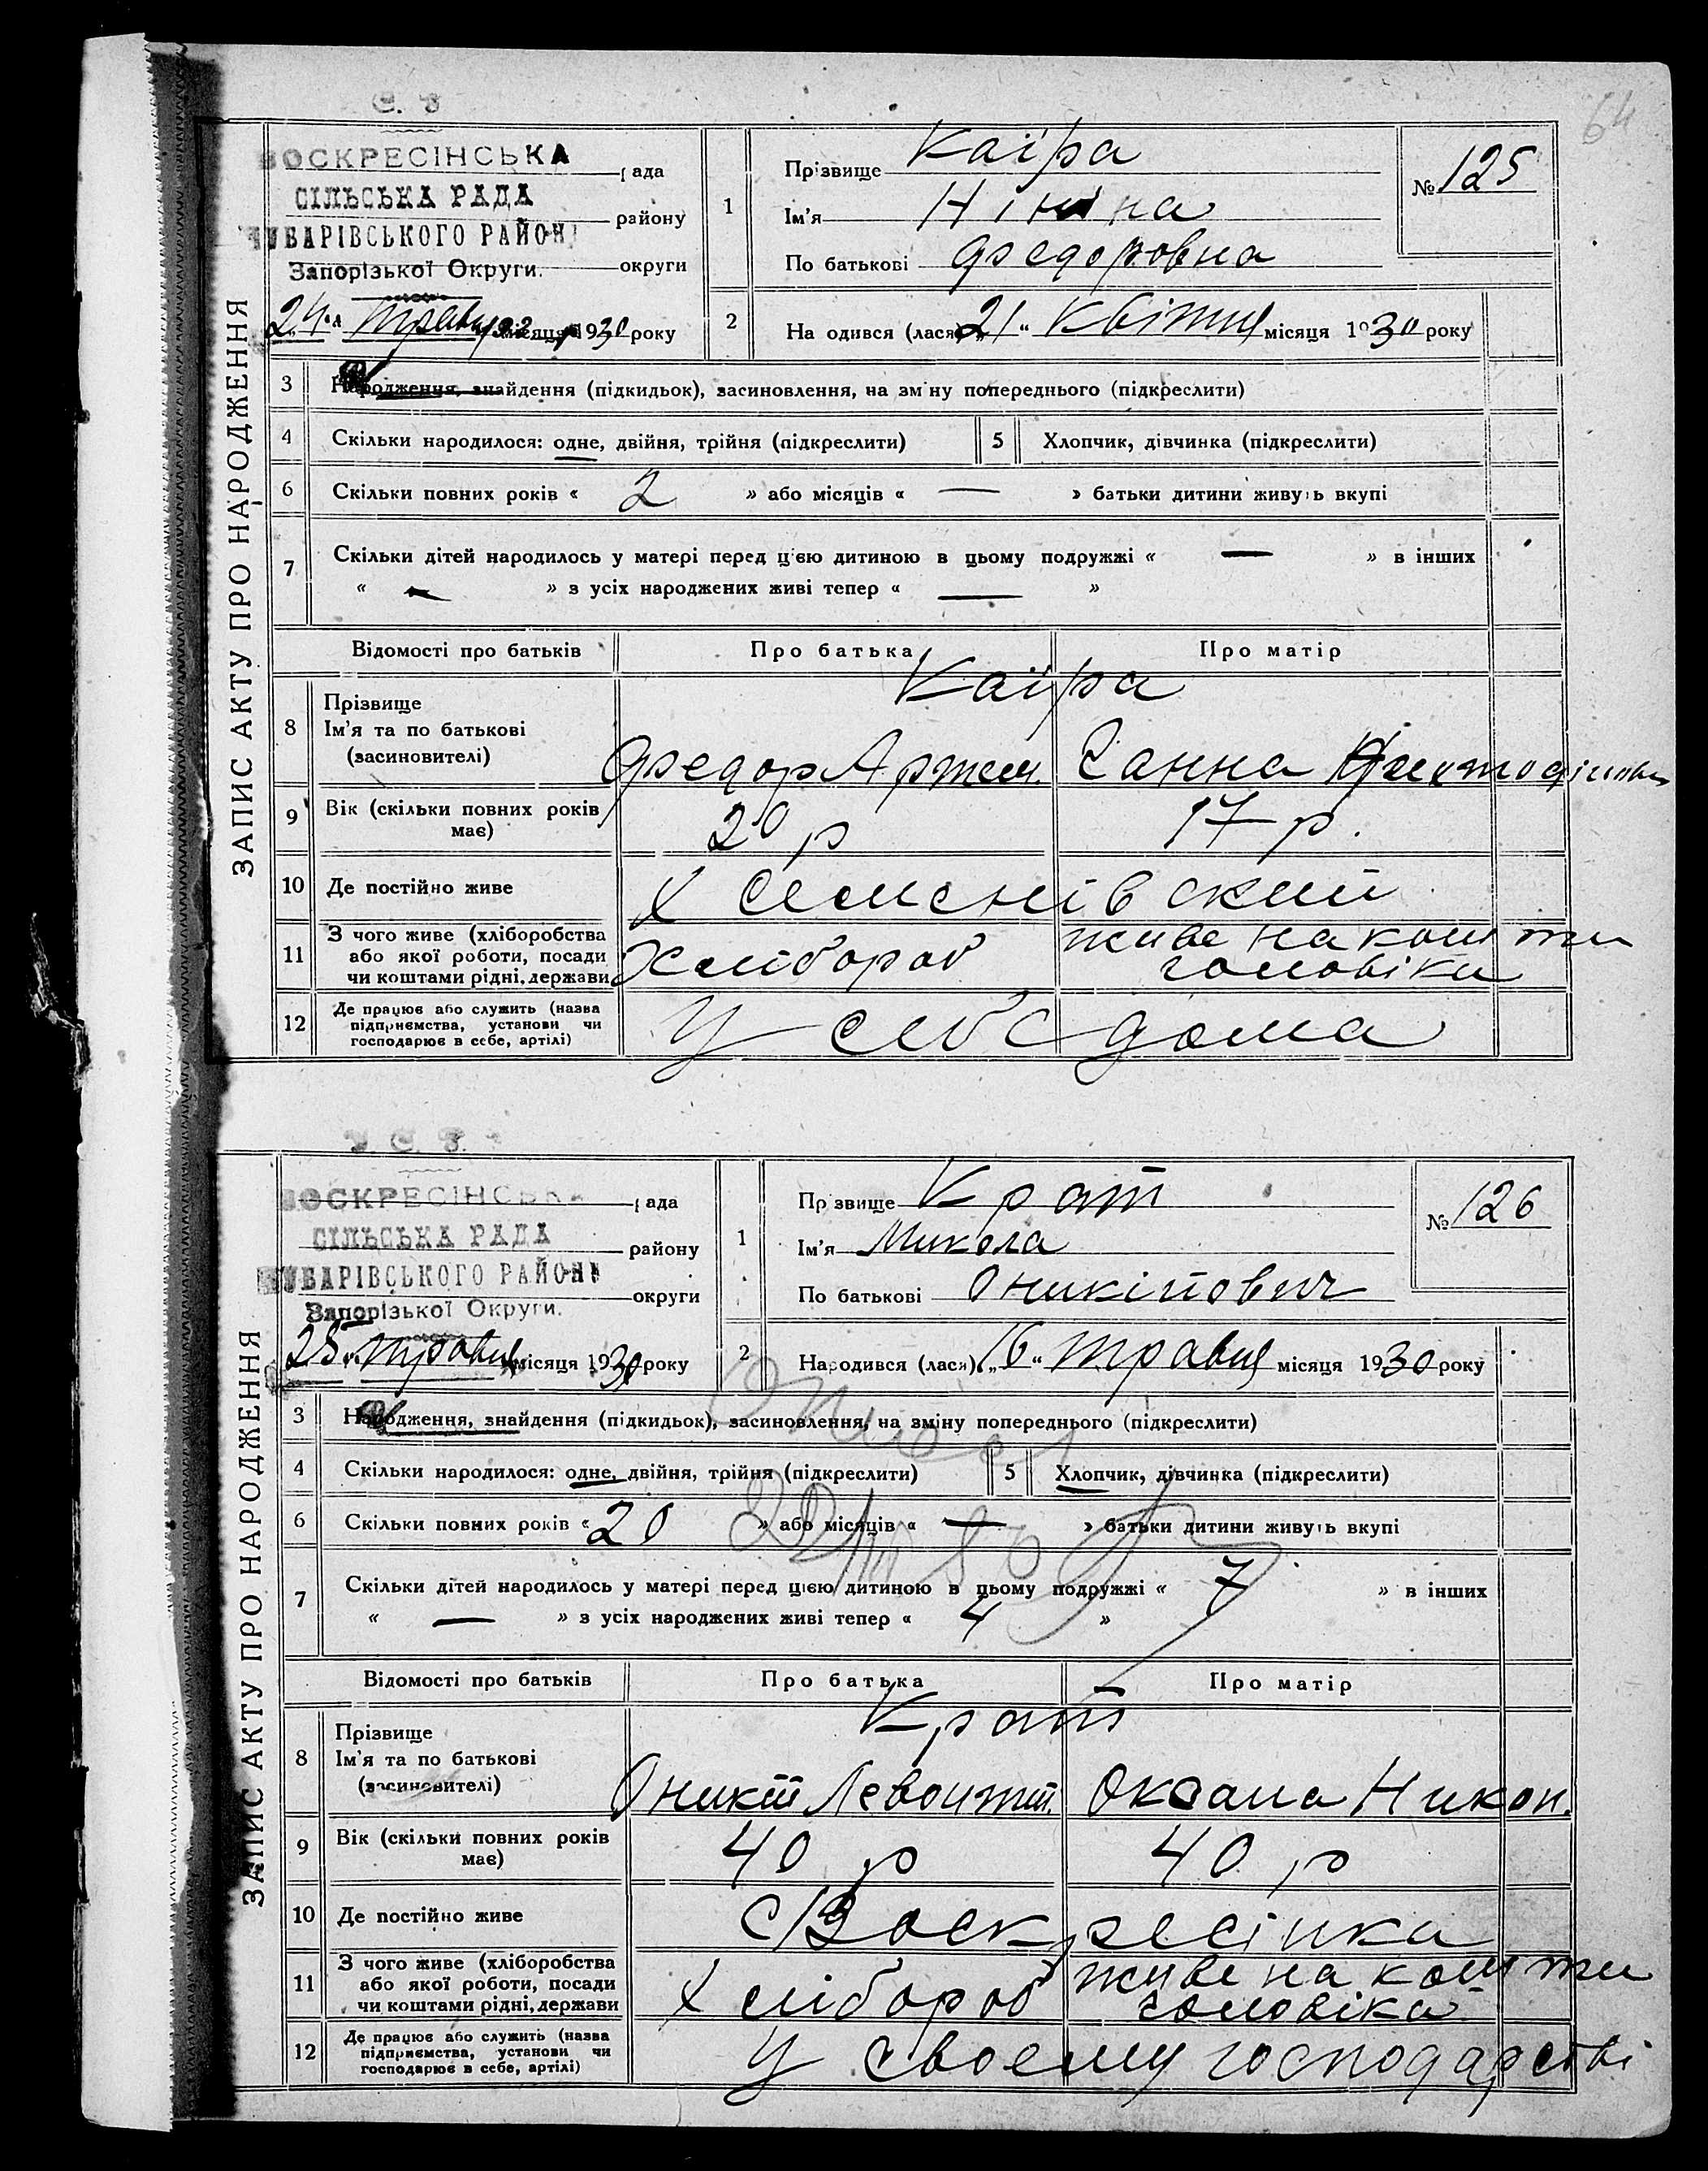 64
ЗАПИС АКТУ ПРО НАРОДЖЕННЯ
ВОСКРЕСІНСЬКА рада
СІЛЬСЬКА РАДА району
ЧУБАРІВСЬКОГО РАЙОНУ
Запорізької Округи. округи
24 " травця місяця 1930 року
1 Прізвище Каіра
Ім'я Ніна
По батькові Федоровна
№ 125
2 Народився (лася) „21“ Квітця місяця 1930 року
3 Народження, знайдення (підкидьок), засиновлення, на зміну попереднього (підкреслити)
4 Скільки народилося: одне, двійня, трійня (підкреслити) 5 Хлопчик, дівчинка (підкреслити)
6 Скільки повних років « 2 » або місяців « — » батьки дитини живуть вкупі
7 Скільки дітей народилось у матері перед цією дитиною в цьому подружжі « — » в інших
« — » з усіх народжених живі тепер « — »
Відомості про батьків Про батька Про матір
8 Прізвище Ім'я та по батькові (засиновителі) Каіра
Федор Артем. Ганна
9 Вік (скільки повних років має) 20 р 17 р.
10 Де постійно живе х Семенівский
11 З чого живе (хліборобства або якої роботи, посади чи коштами рідні, держави Хлібороб живе на кошти чоловіка
12 Де працює або служить (назва підприємства, установи чи господарює в себе, артілі) У себе дома
ЗАПИС АКТУ ПРО НАРОДЖЕННЯ
ВОСКРЕСІНСЬКА рада
СІЛЬСЬКА РАДА району
ЧУБАРІВСЬКОГО РАЙОНУ
Запорізької Округи. округи
25 " травця місяця 1930 року
1 Прізвище Крат
Ім'я Микола
По батькові Оникіпович
№ 126
2 Народився (лася) „16“ травця місяця 1930 року
3 Народження, знайдення (підкидьок), засиновлення, на зміну попереднього (підкреслити)
4 Скільки народилося: одне, двійня, трійня (підкреслити) 5 Хлопчик, дівчинка (підкреслити)
6 Скільки повних років « 20 » або місяців « — » батьки дитини живуть вкупі
7 Скільки дітей народилось у матері перед цією дитиною в цьому подружжі « 7 » в інших
« — » з усіх народжених живі тепер « 4 »
Відомості про батьків Про батька Про матір
8 Прізвище Ім'я та по батькові (засиновителі) Крат
Оникій Левонт. Оксана Никон.
9 Вік (скільки повних років має) 40 р 40 р
10 Де постійно живе с Воскресінка
11 З чого живе (хліборобства або якої роботи, посади чи коштами рідні, держави Хлібороб живе на кошти чоловіка
12 Де працює або служить (назва підприємства, установи чи господарює в себе, артілі) У своему господарстві